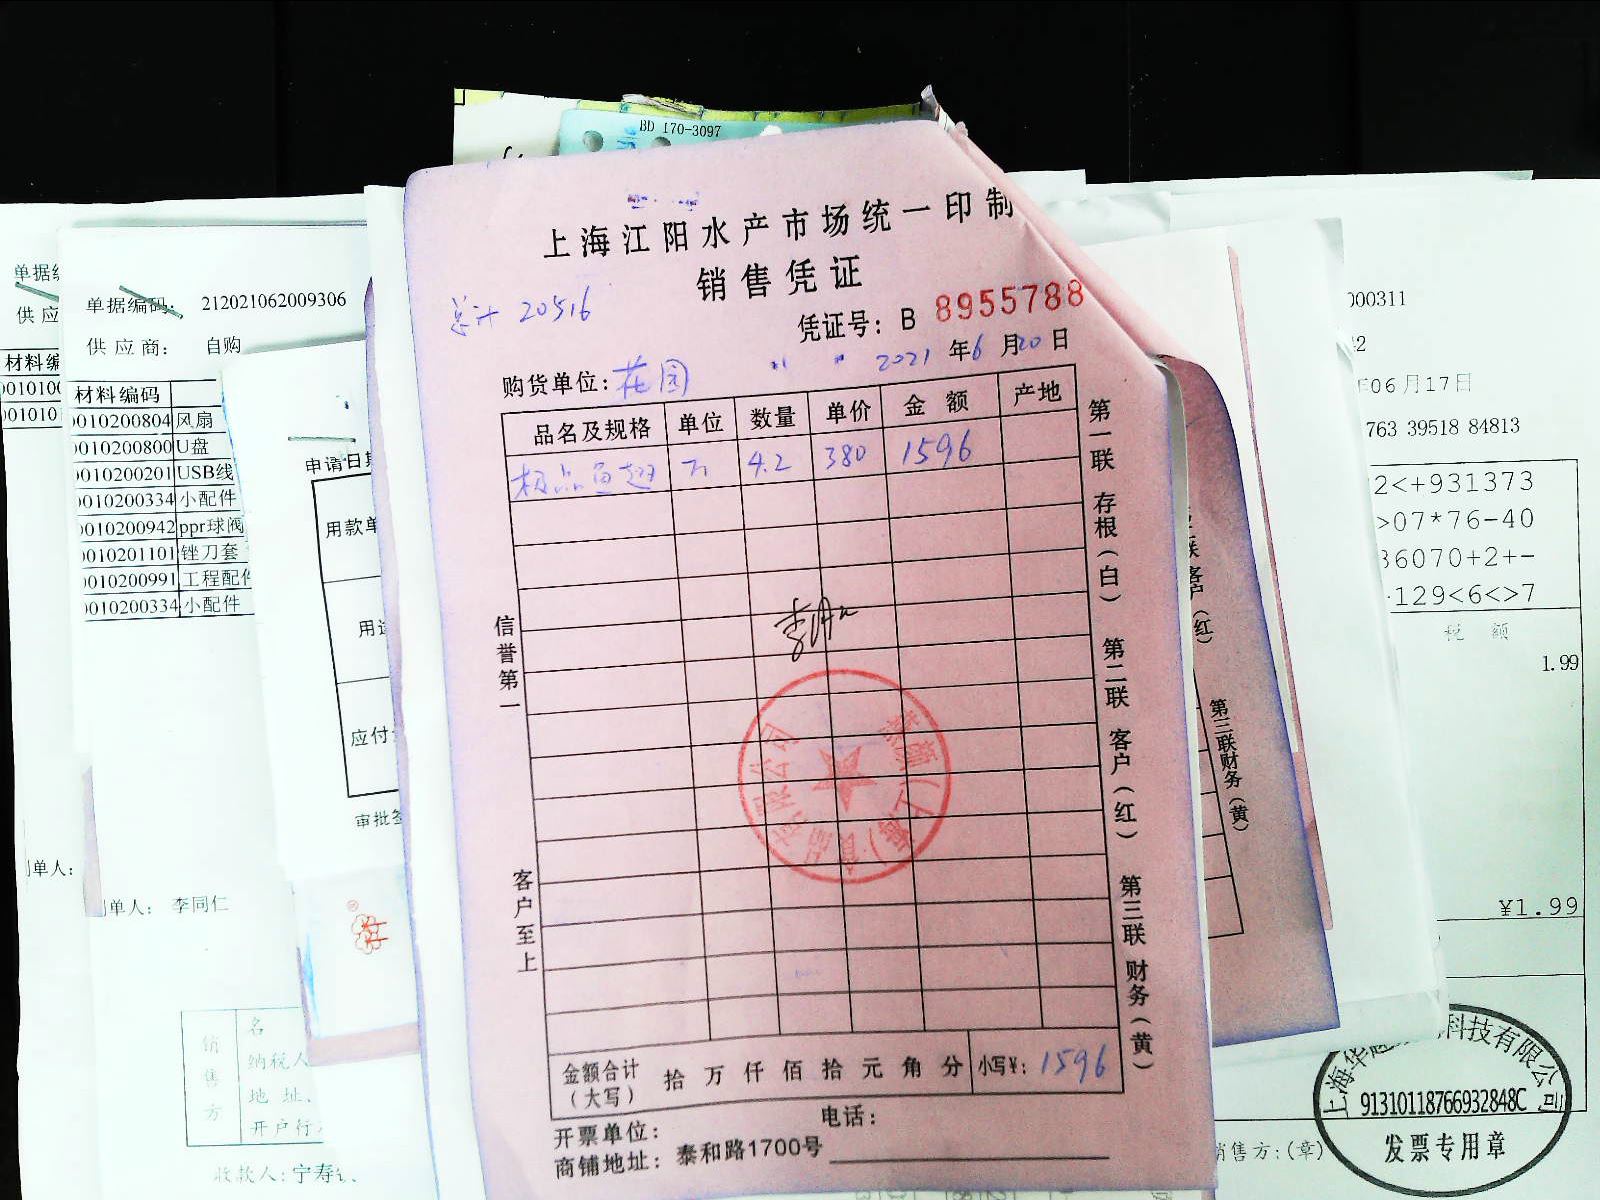 BD 170-3097
上海江阳水产市场统一印制
销售凭证
总计 20516
凭证号: B 8955788
购货单位: 花园 2021 年 6 月 20 日
品名及规格 单位 数量 单价 金额 产地
极品鱼翅 4.2 380 1596
第一联 存根(白) 第二联 客户(红) 第三联 财务(黄)
信誉第一
客户至上
金额合计(大写) 拾 万 仟 佰 拾 元 角 分 小写¥: 1596
开票单位: 电话:
商铺地址: 泰和路1700号
单据编码: 212021062009306
供应商: 自购
材料编码
0010200804 风扇
0010200800 U盘
0010200201 USB线
0010200334 小配件
0010200942 ppr球阀
0010201101 锉刀套
0010200991 工程配件
0010200334 小配件
单人: 李同仁
单据
供应
材料编
单人:
申请日期
用款单
用途
应付
审批签
销售方
名
纳税人
地 址、
开户行
收款人: 宁寿
联 客户(红)
第三联财务(黄)
000311
年06月17日
763 39518 84813
2<+931373
>07*76-40
36070+2+-
129<6<>7
税 额
1.99
¥1.99
科技有限公司
91310118766932848C
发票专用章
销售方:(章)